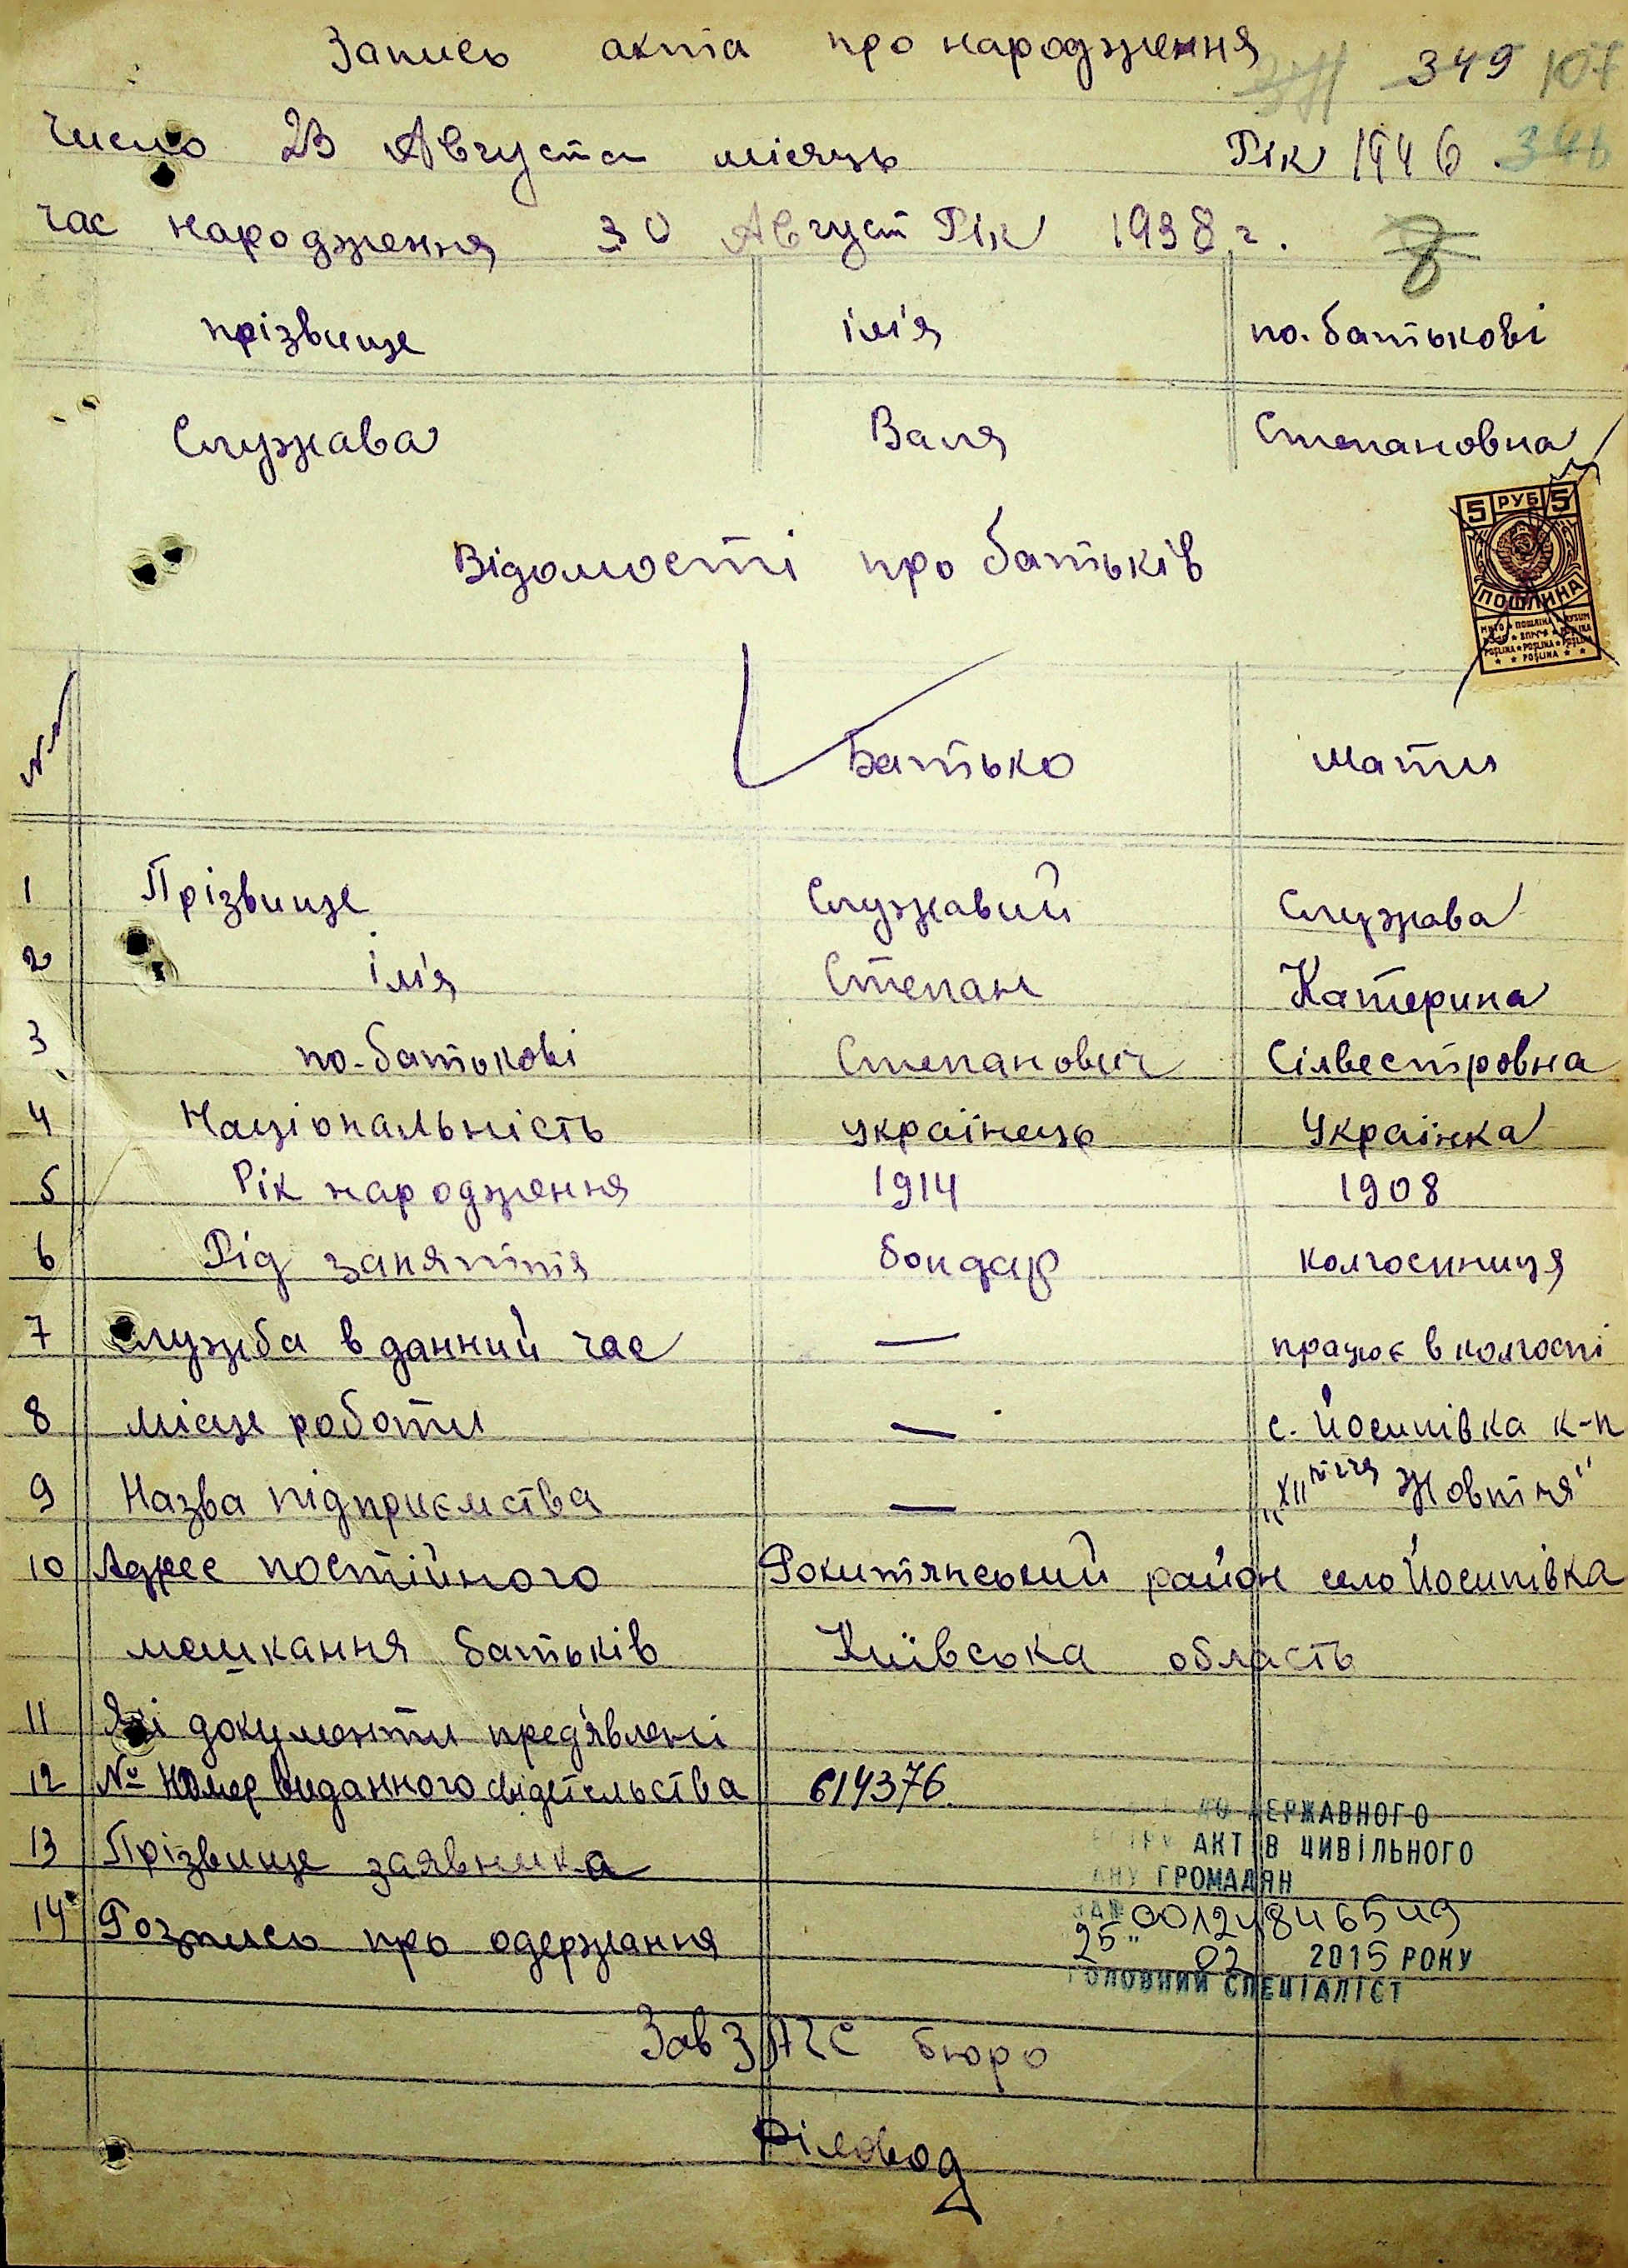 Запись акта про народження 349 107
Число 23 Августа місяць Рік 1946 346
час народження 30 Август Рік 1938 г. 8
прізвище ім'я по-батькові
Служава Валя Степановна
5 РУБ 5
ПОШЛИНА
Відомості про батьків
№ Батько мати
1 Прізвище Служавий Служава
2 ім'я Степан Катерина
3 по-батькові Степанович Сілвестровна
4 Національність українець Українка
5 Рік народження 1914 1908
6 Рід заняття бондар колгоспниця
7 Служба в данний час — працює в колгоспі
8 місце роботи — с. Йосипівка к-п
9 Назва підприємства — „XII річчя Жовтня"
10 Адрес постійного Рокитянський район село Йосипівка
мешкання батьків Київська область
11 Які документи пред'явлені
12 № Номер виданного свідетельства 614376.
13 Прізвище заявника
14 Розпись про одержання
ДО ДЕРЖАВНОГО
АКТІВ ЦИВІЛЬНОГО
ГРОМАДЯН
ЗА № 00124846549
25 " 02 2015 РОКУ
ГОЛОВНИЙ СПЕЦІАЛІСТ
Зав ЗАГС бюро
Діловод